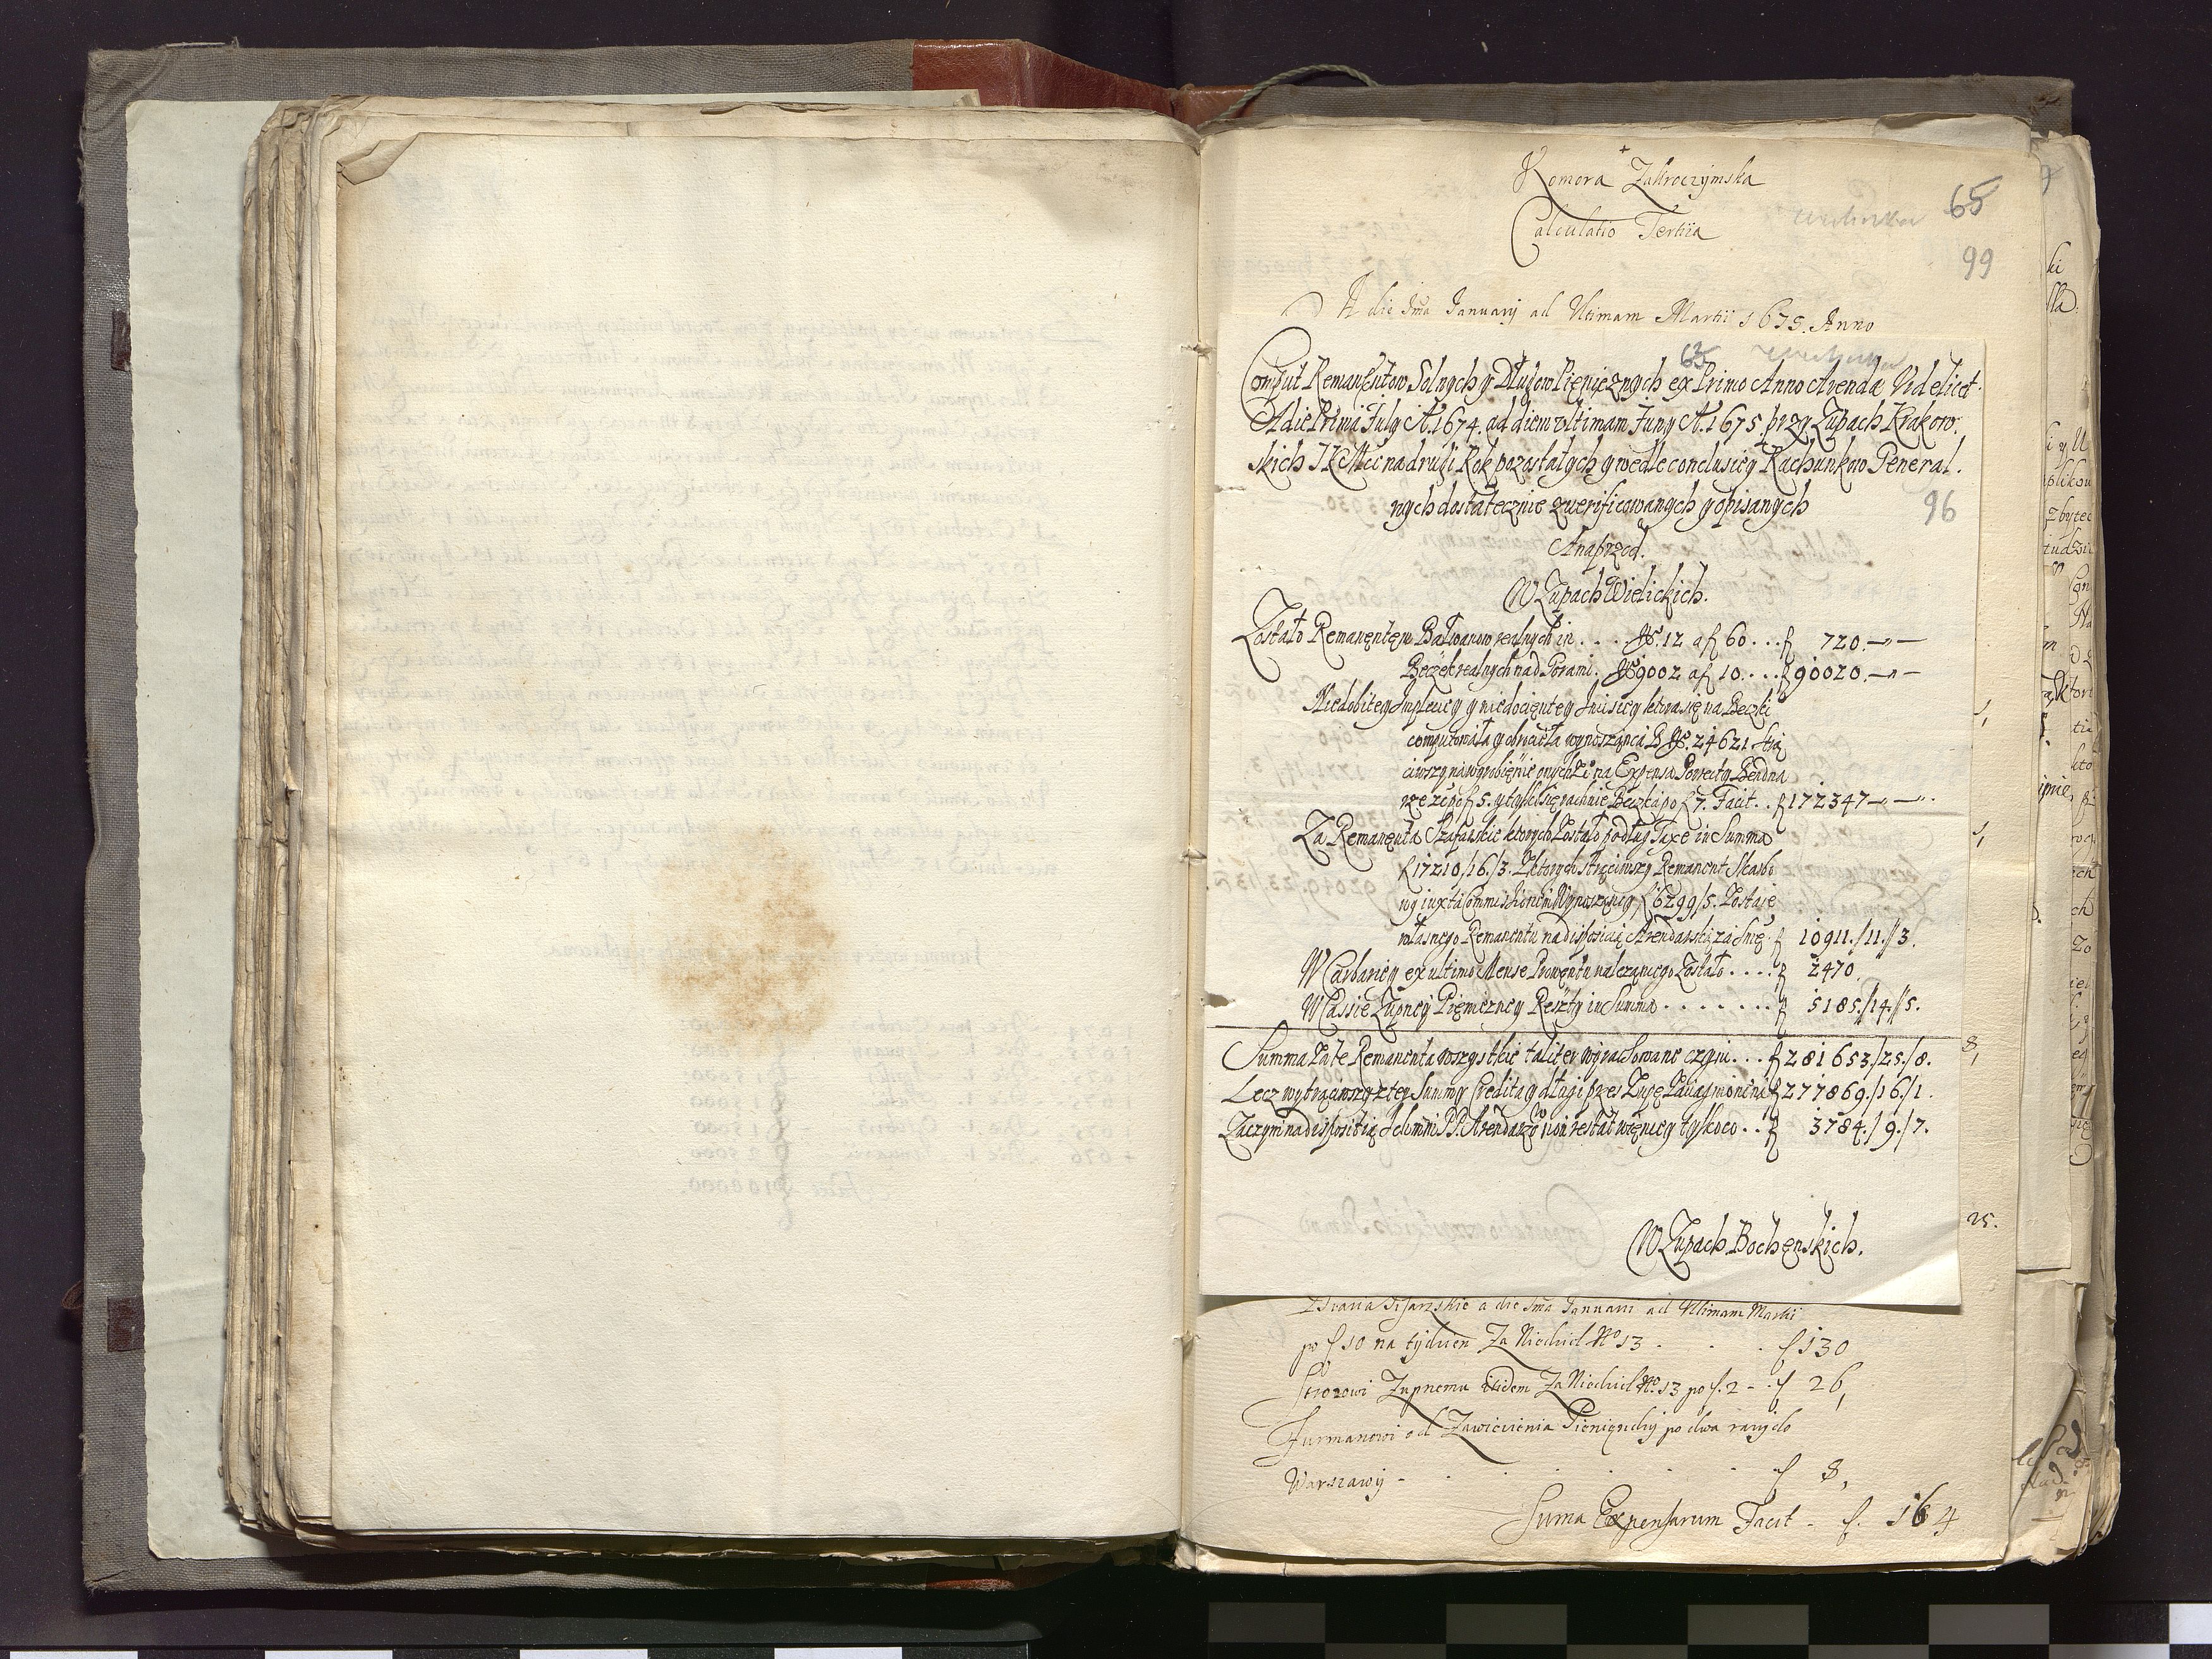 Komora Zakroczymska
65
Calculatio Tertiia
99
A die 1ma January ad Ultimam Martii 1675. Anno
63
Comput Remanentow Solnych y Długow Pieniężnych ex Primo Anno Arendæ Videlicet
A die Prima July A. 1674. ad diem ultimam Juny A. 1675. przy Zupach Krakow.
skich JKMci na drugi Rok pozostałych y wedle conclusiey Rachunkow General.
nych dostatecznie zwerificowanych y opisanych
96
A naprzod.
W Zupach Wielickich.
Zostało Remanentem Bałwanow realnych in . . . . No 12 a f 60 . . . f 720.—"—
Beczek realnych nad Gorami. No 9002 a f 10 . . . . f 90020.—"—
Niedobitey Impleucy y niedociętey Incisiey ktora się na Beczki
computowała y obruciła wynosząca B No. 24621 Strą
ciwszy na wyrobienie onych
rze po f 5. y tylko się rachuie Beczka po f 7. Facit . . f 172347—"—"
Za Remanenta Szafarskie ktorych Zostało podług Taxe in Summa
f 17210/16./3. Z ktorych Strąciwszy Remanent Skarbo
wy iuxta Commissionem Wynoszący f 6299/5. Zostaie
własnego Remanentu na disposicią Arendarską za Inę f 10911./11./3.
W Carbariey ex ultimo Mense Prowentu nalezącego Zostało . . . . f 2470.
W Cassie Zupney Pieniezney Reszty in Summa . . . . . . . f 5185./14./5.
Summa Zate Remanenta wszystkie taliter wyrachowane czyni . . . f 281653./25./8.
Lecz wytrąciwszy z tey Summy Credita y długi przes Zupę f 277869./16./1.
Zaczym na dispositią Ichmm PP. Arendarzow non restat więcey tylko co . . f 3784./9./7.
25.
W Zupach Bochenskich.
Strawa Pisarskie a die 1ma Januarii ad Ultimam Martii
po f 10 na tydzien Za Niedziel No 13 . . . f 130
Strozowi Zupnemu itidem Za Niedziel No. 13 po f. 2 - . f 26,
Furmanowi od Zawiezienia Pieniędzy po dwa razy do
Warszawy - . . . . . f 8,
Suma Expensarum Facit - f. 164